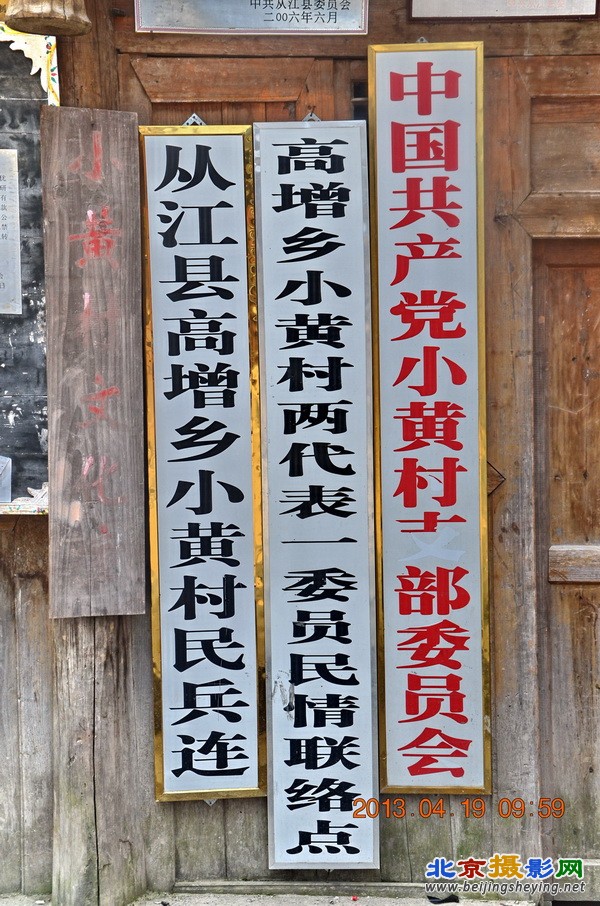 中共从江县委员会
二00六年六月
中国共产党小黄村支部委员会
高增乡小黄村两代表一委员民情联络点
从江县高增乡小黄村民兵连
小黄村文化
2013.04.19 09:59
北京摄影网
www.beijingsheying.net